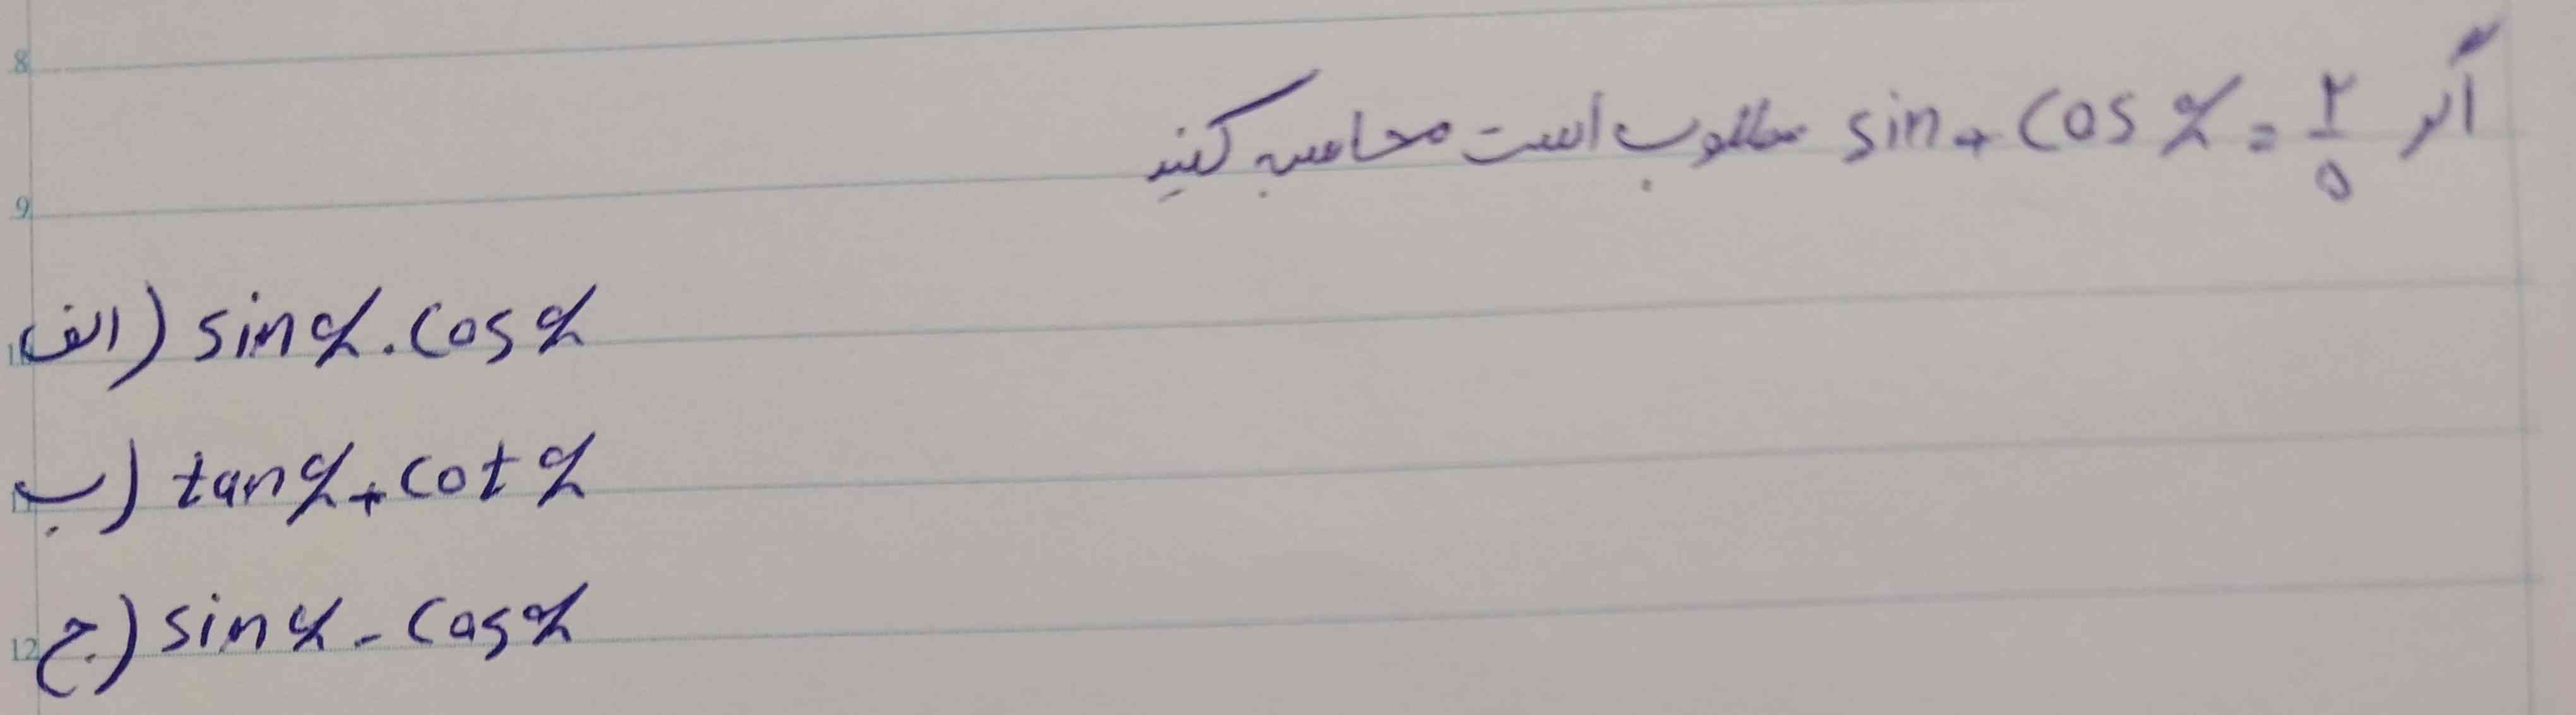 8
اگر sin + cos x = ۲/۵ مطلوب است محاسبه کنید
9
الف) sin x . cos x
ب) tan x + cot x
12
ج) sin x - cos x